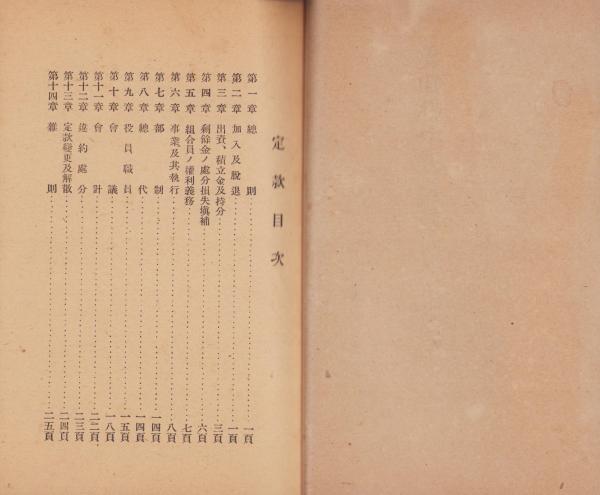 定款目次
第一章 總則 一頁
第二章 加入及脫退 一頁
第三章 出資、積立金及持分 三頁
第四章 剩餘金ノ處分損失塡補 六頁
第五章 組合員ノ權利義務 七頁
第六章 事業及其執行 八頁
第七章 部制 一四頁
第八章 總代 一四頁
第九章 役員職員 一五頁
第十章 會議 一八頁
第十一章 會計 二二頁
第十二章 違約處分 二三頁
第十三章 定款變更及解散 二四頁
第十四章 雜則 二五頁